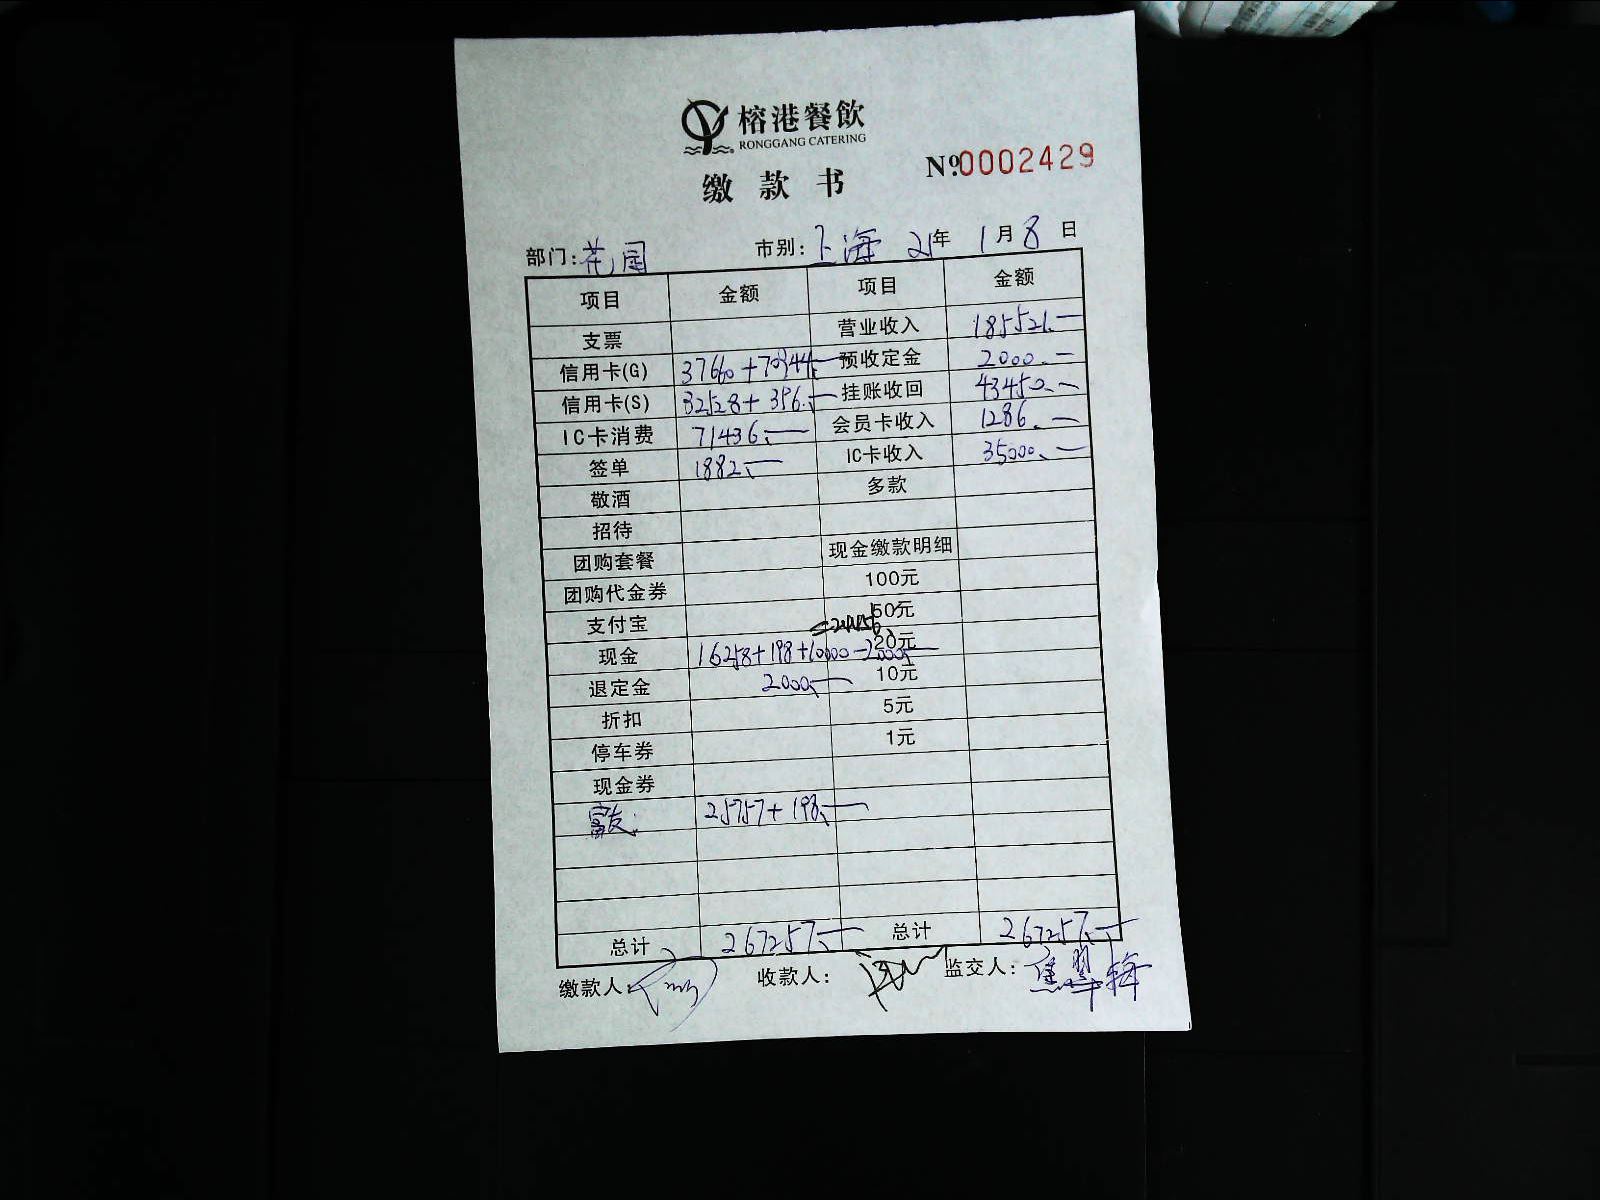 榕港餐飲
RONGGANG CATERING
缴款书
Nº.0002429
部门:花园 市别:上海 21年 1月8日
项目 金额 项目 金额
支票 营业收入 185521.—
信用卡(G) 37660+70944.— 预收定金 2000.—
信用卡(S) 32528+396.— 挂账收回 43450.—
IC卡消费 71436.— 会员卡收入 1286.—
签单 1882.— IC卡收入 35000.—
敬酒 多款
招待
团购套餐 现金缴款明细
团购代金券 100元
支付宝 =24456 50元
现金 16258+198+10000-2000.— 20元
退定金 2000.— 10元
折扣 5元
停车券 1元
现金券
富友: 25757+198.—
总计 267257.— 总计 267257.—
缴款人: 收款人: 监交人: